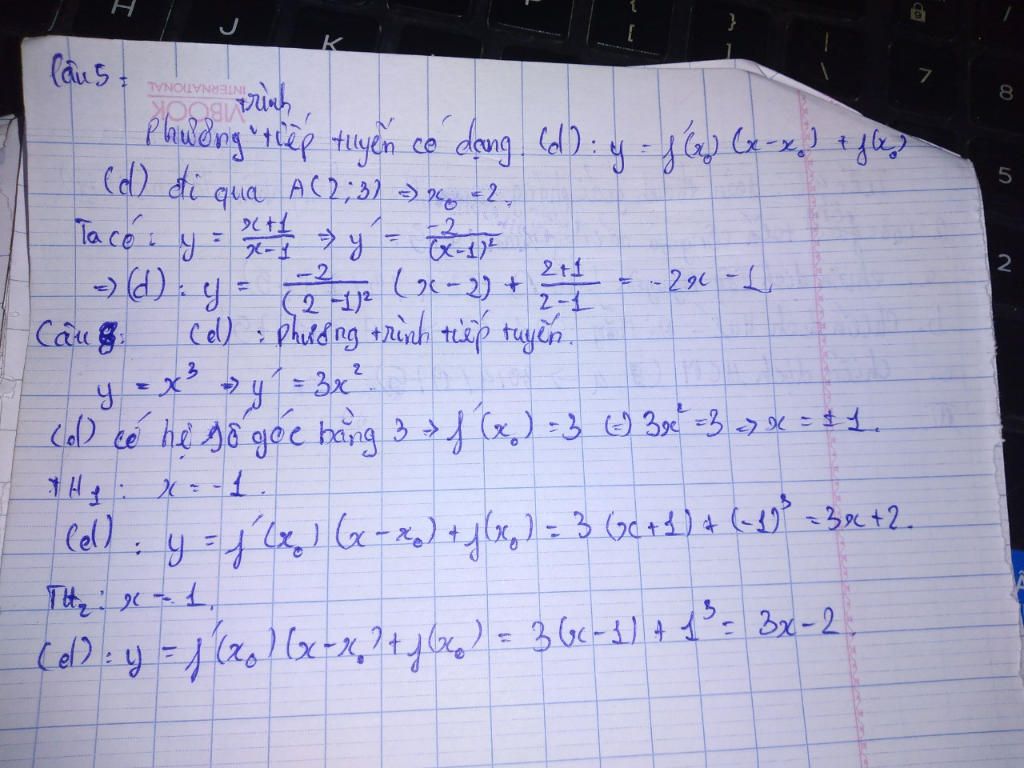 Câu 5:
VIBOOK
INTERNATIONAL
trình
Phương tiếp tuyến có dạng (d): y = f'(x₀) (x-x₀) + f(x₀)
(d) đi qua A(2;3) ⇒ x₀ = 2.
Ta có: y = \frac{x+1}{x-1} ⇒ y' = \frac{-2}{(x-1)²}
⇒ (d): y = \frac{-2}{(2-1)²} (x-2) + \frac{2+1}{2-1} = -2x - 1
Câu 8: (d): phương trình tiếp tuyến.
y = x³ ⇒ y' = 3x².
(d) có hệ số góc bằng 3 ⇒ f'(x₀) = 3 (=) 3x² = 3 ⇒ x = ±1.
TH₁: x = -1.
(d): y = f'(x₀) (x-x₀) + f(x₀) = 3(x+1) + (-1)³ = 3x+2.
TH₂: x = 1.
(d): y = f'(x₀) (x-x₀) + f(x₀) = 3(x-1) + 1³ = 3x-2.
H
J
K
P
{
[
}
]
|
\
/
7
8
5
2